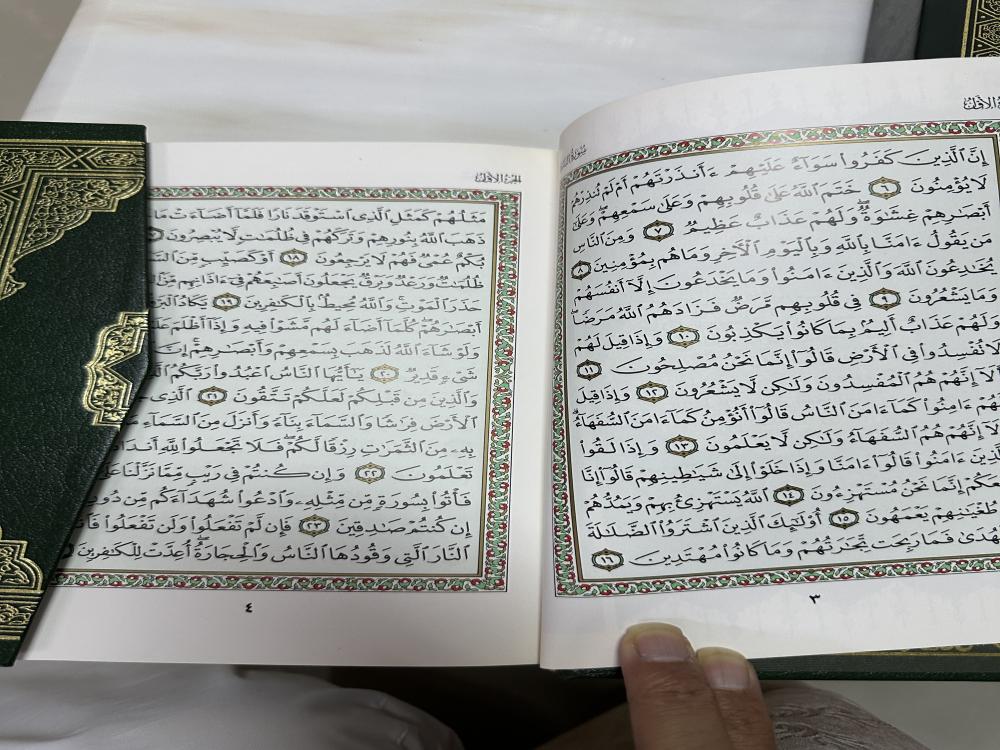 الأول
إِنَّ الَّذِينَ كَفَرُوا سَوَآءٌ عَلَيْهِمْ ءَأَنذَرْتَهُمْ أَمْ لَمْ تُنذِرْهُمْ
لَا يُؤْمِنُونَ ٦ خَتَمَ اللَّهُ عَلَىٰ قُلُوبِهِمْ وَعَلَىٰ سَمْعِهِمْ وَعَلَىٰ
أَبْصَٰرِهِمْ غِشَٰوَةٌ وَلَهُمْ عَذَابٌ عَظِيمٌ ٧ وَمِنَ النَّاسِ
مَن يَقُولُ ءَامَنَّا بِاللَّهِ وَبِالْيَوْمِ الْآخِرِ وَمَا هُم بِمُؤْمِنِينَ ٨
يُخَٰدِعُونَ اللَّهَ وَالَّذِينَ ءَامَنُوا وَمَا يَخْدَعُونَ إِلَّا أَنفُسَهُمْ
وَمَا يَشْعُرُونَ ٩ فِي قُلُوبِهِم مَّرَضٌ فَزَادَهُمُ اللَّهُ مَرَضًا
وَلَهُمْ عَذَابٌ أَلِيمٌ بِمَا كَانُوا يَكْذِبُونَ ١٠ وَإِذَا قِيلَ لَهُمْ
لَا تُفْسِدُوا فِي الْأَرْضِ قَالُوا إِنَّمَا نَحْنُ مُصْلِحُونَ ١١
أَلَآ إِنَّهُمْ هُمُ الْمُفْسِدُونَ وَلَٰكِن لَّا يَشْعُرُونَ ١٢ وَإِذَا قِيلَ
لَهُمْ ءَامِنُوا كَمَآ ءَامَنَ النَّاسُ قَالُوا أَنُؤْمِنُ كَمَآ ءَامَنَ السُّفَهَآءُ
إِنَّهُمْ هُمُ السُّفَهَآءُ وَلَٰكِن لَّا يَعْلَمُونَ ١٣ وَإِذَا لَقُوا
الَّذِينَ ءَامَنُوا قَالُوا ءَامَنَّا وَإِذَا خَلَوْا إِلَىٰ شَيَٰطِينِهِمْ قَالُوا إِنَّا
إِنَّمَا نَحْنُ مُسْتَهْزِءُونَ ١٤ اللَّهُ يَسْتَهْزِئُ بِهِمْ وَيَمُدُّهُمْ
طُغْيَٰنِهِمْ يَعْمَهُونَ ١٥ أُولَٰٓئِكَ الَّذِينَ اشْتَرَوُا الضَّلَٰلَةَ
فَمَا رَبِحَت تِّجَٰرَتُهُمْ وَمَا كَانُوا مُهْتَدِينَ ١٦
٣
الجزء الأول
مَثَلُهُمْ كَمَثَلِ الَّذِي اسْتَوْقَدَ نَارًا فَلَمَّآ أَضَآءَتْ مَا
ذَهَبَ اللَّهُ بِنُورِهِمْ وَتَرَكَهُمْ فِي ظُلُمَٰتٍ لَّا يُبْصِرُونَ
بُكْمٌ عُمْيٌ فَهُمْ لَا يَرْجِعُونَ ١٨ أَوْ كَصَيِّبٍ مِّنَ
ظُلُمَٰتٌ وَرَعْدٌ وَبَرْقٌ يَجْعَلُونَ أَصَٰبِعَهُمْ فِي ءَاذَانِهِم مِّنَ
حَذَرَ الْمَوْتِ وَاللَّهُ مُحِيطٌ بِالْكَٰفِرِينَ ١٩ يَكَادُ
أَبْصَٰرَهُمْ كُلَّمَآ أَضَآءَ لَهُم مَّشَوْا فِيهِ وَإِذَآ أَظْلَمَ
وَلَوْ شَآءَ اللَّهُ لَذَهَبَ بِسَمْعِهِمْ وَأَبْصَٰرِهِمْ إِنَّ
شَيْءٍ قَدِيرٌ ٢٠ يَٰٓأَيُّهَا النَّاسُ اعْبُدُوا رَبَّكُمُ
وَالَّذِينَ مِن قَبْلِكُمْ لَعَلَّكُمْ تَتَّقُونَ ٢١ الَّذِي
الْأَرْضَ فِرَٰشًا وَالسَّمَآءَ بِنَآءً وَأَنزَلَ مِنَ السَّمَآءِ
بِهِ مِنَ الثَّمَرَٰتِ رِزْقًا لَّكُمْ فَلَا تَجْعَلُوا لِلَّهِ أَندَادًا
تَعْلَمُونَ ٢٢ وَإِن كُنتُمْ فِي رَيْبٍ مِّمَّا نَزَّلْنَا
فَأْتُوا بِسُورَةٍ مِّن مِّثْلِهِ وَادْعُوا شُهَدَآءَكُم مِّن
إِن كُنتُمْ صَٰدِقِينَ ٢٣ فَإِن لَّمْ تَفْعَلُوا وَلَن تَفْعَلُوا
النَّارَ الَّتِي وَقُودُهَا النَّاسُ وَالْحِجَارَةُ أُعِدَّتْ لِلْكَٰفِرِينَ
٤